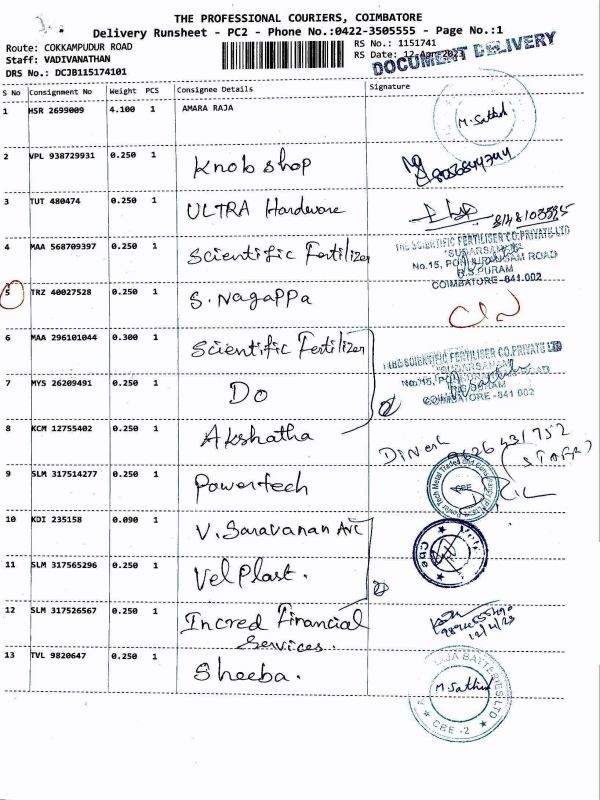 THE PROFESSIONAL COURIERS, COIMBATORE
Delivery Runsheet - PC2 - Phone No.:0422-3505555 - Page No.:1
Route: COKKAMPUDUR ROAD
RS No.: 1151741
Staff: VADIVANATHAN
RS Date: 12-Apr-2023
DRS No.: DCJB115174101
DOCUMENT DELIVERY
S No Consignment No Weight PCS Consignee Details Signature
1 HSR 2699009 4.100 1 AMARA RAJA
M. Sathid
2 VPL 938729931 0.250 1 Knob shop
3 TUT 480474 0.250 1 ULTRA Hardware
4 MAA 568709397 0.250 1 Scientific Fertilizer
THE SCIENTIFIC FERTILISER CO.PRIVATE LTD
"SUDARSANAM"
No.15, PONNURANGAM ROAD
R.S.PURAM
COIMBATORE-641 002
5 TRZ 40027528 0.250 1 S. Nagappa
6 MAA 296101044 0.300 1 Scientific Fertilizer
THE SCIENTIFIC FERTILISER CO.PRIVATE LTD
"SUDARSANAM"
COIMBATORE-641 002
7 MYS 26209491 0.250 1 Do
8 KCM 12755402 0.250 1 Akshatha
Dinesh 9626431752
(STAFF)
9 SLM 317514277 0.250 1 Powertech
CBE
10 KDI 235158 0.090 1 V. Saravanan A/c
Cbe
11 SLM 317565296 0.250 1 Vel Plast.
12 SLM 317526567 0.250 1 Incred Financial
Services.
12/4/23
13 TVL 9820647 0.250 1 Sheeba.
M. Sathid
CBE -2